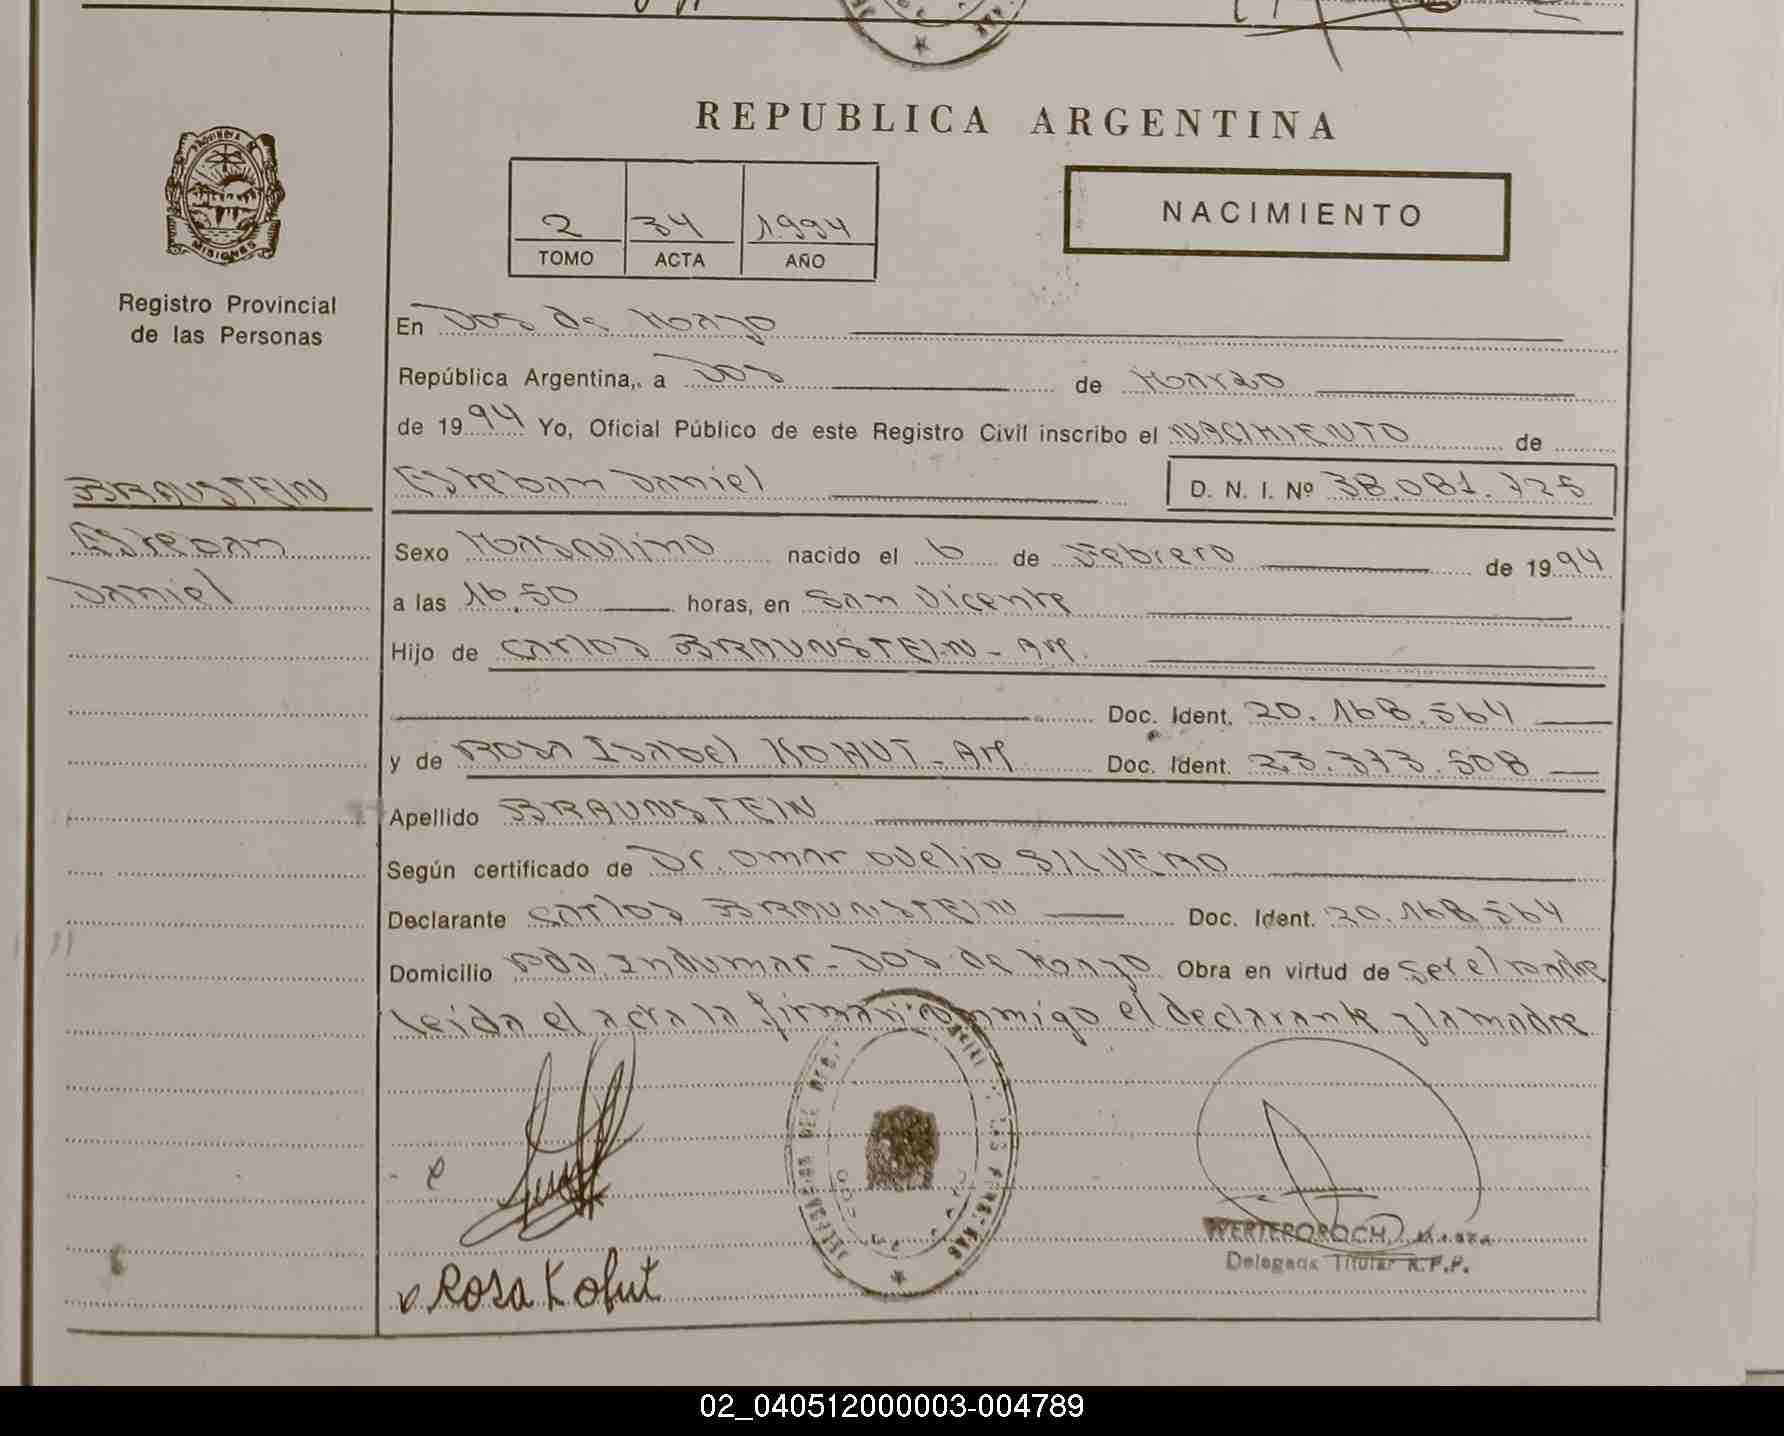 REPUBLICA ARGENTINA
PROVINCIA DE
MISIONES
2 34 1994
TOMO ACTA AÑO
NACIMIENTO
Registro Provincial
de las Personas
En Dos de Marzo
República Argentina, a Dos de Marzo
de 1994 Yo, Oficial Público de este Registro Civil inscribo el NACIMIENTO de
BRAUSTEIN
Esteban Daniel D. N. I. Nº 38.081.725
Esteban
Daniel
Sexo Masculino nacido el 6 de Febrero de 1994
a las 16.50 horas, en San Vicente
Hijo de Carlos BRAUNSTEIN - AR.
Doc. Ident. 20.168.564
y de Rosa Isabel KOHUT - AR Doc. Ident. 23.373.508
Apellido BRAUNSTEIN
Según certificado de Dr. Omar Ovelio SILVERO
Declarante Carlos BRAUNSTEIN Doc. Ident. 20.168.564
Domicilio Pda. Indumar - Dos de Marzo Obra en virtud de ser el padre
Leída el acta la firman conmigo el declarante y la madre
Rosa Kohut
WERTEROROCH,
Delegada Titular R.P.P.
02_040512000003-004789